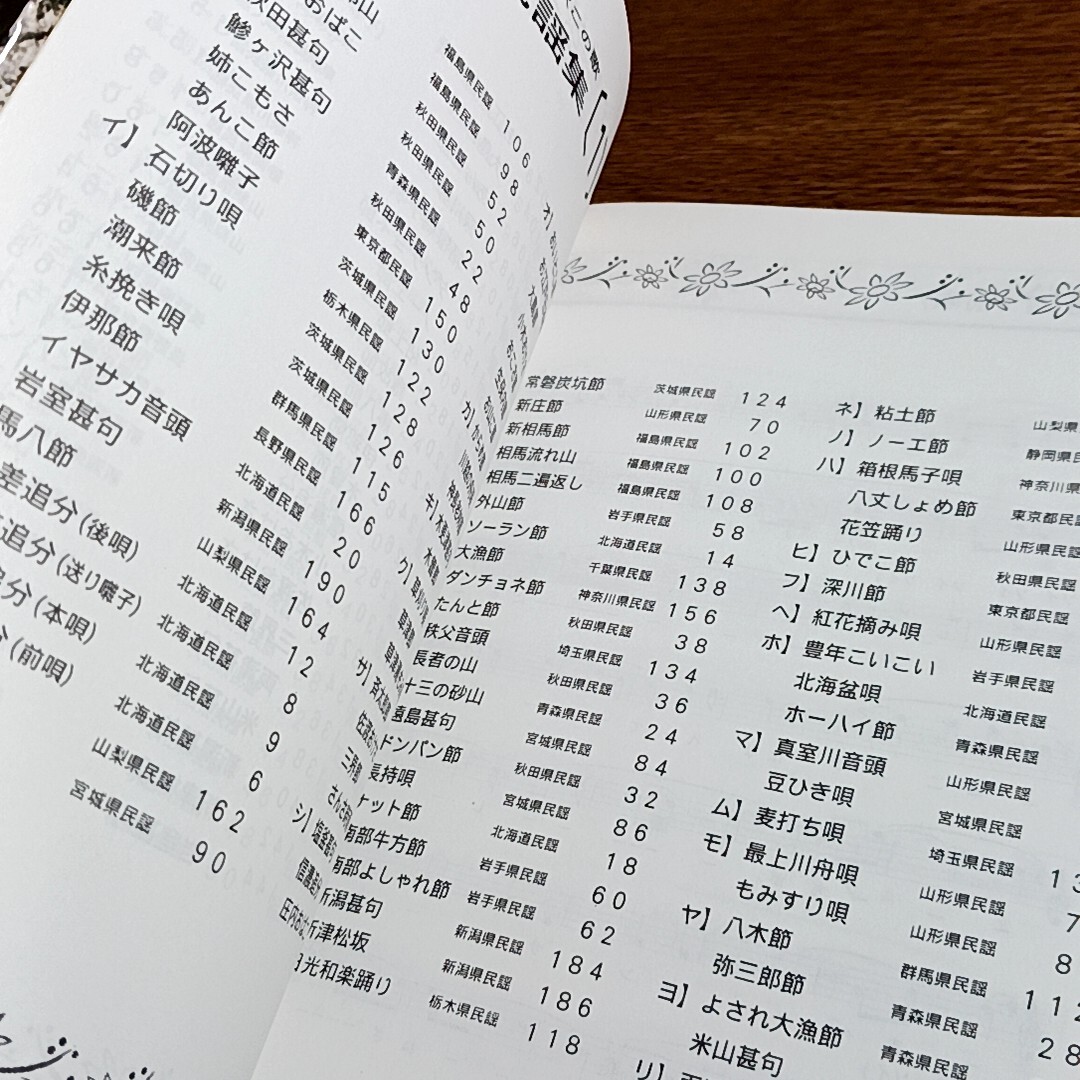 山
おばこ 秋田県民謡 52
秋田甚句 秋田県民謡 50
鰺ヶ沢甚句 青森県民謡 22
姉こもさ 秋田県民謡 48
あんこ節 東京都民謡 150
阿波囃子 茨城県民謡 130
イ】石切り唄 栃木県民謡 122
磯節 茨城県民謡 128
潮来節 茨城県民謡 126
糸挽き唄 群馬県民謡 115
伊那節 長野県民謡 166
イヤサカ音頭 北海道民謡 20
岩室甚句 新潟県民謡 190
馬八節 山梨県民謡 164
差追分(後唄) 北海道民謡 12
追分(送り囃子) 北海道民謡 8
追分(本唄) 北海道民謡 9
分(前唄) 北海道民謡 6
山梨県民謡 162
宮城県民謡 90
福島県民謡 106
福島県民謡 98
この歌
謡集
常磐炭坑節 茨城県民謡 124
新庄節 山形県民謡 70
新相馬節 福島県民謡 102
相馬流れ山 福島県民謡 100
相馬二遍返し 福島県民謡 108
外山節 岩手県民謡 58
ソーラン節 北海道民謡 14
大漁節 千葉県民謡 138
ダンチョネ節 神奈川県民謡 156
たんと節 秋田県民謡 38
秩父音頭 埼玉県民謡 134
長者の山 秋田県民謡 36
十三の砂山 青森県民謡 24
遠島甚句 宮城県民謡 84
ドンパン節 秋田県民謡 32
長持唄 宮城県民謡 86
ット節 北海道民謡 18
南部牛方節 岩手県民謡 60
南部よしゃれ節 岩手県民謡 62
新潟甚句 新潟県民謡 184
新津松坂 新潟県民謡 186
日光和楽踊り 栃木県民謡 118
ネ】粘土節 山梨県
ノ】ノーエ節 静岡県民
ハ】箱根馬子唄 神奈川県
八丈しょめ節 東京都民
花笠踊り 山形県民
ヒ】ひでこ節 秋田県民
フ】深川節 東京都民
ヘ】紅花摘み唄 山形県民
ホ】豊年こいこい 岩手県民
北海盆唄 北海道民
ホーハイ節 青森県民
マ】真室川音頭 山形県民
豆ひき唄 宮城県民
ム】麦打ち唄 埼玉県民謡 13
モ】最上川舟唄 山形県民謡 7
もみすり唄 山形県民謡 8
ヤ】八木節 群馬県民謡 112
弥三郎節 青森県民謡 28
ヨ】よされ大漁節 青森県民謡
米山甚句
リ】